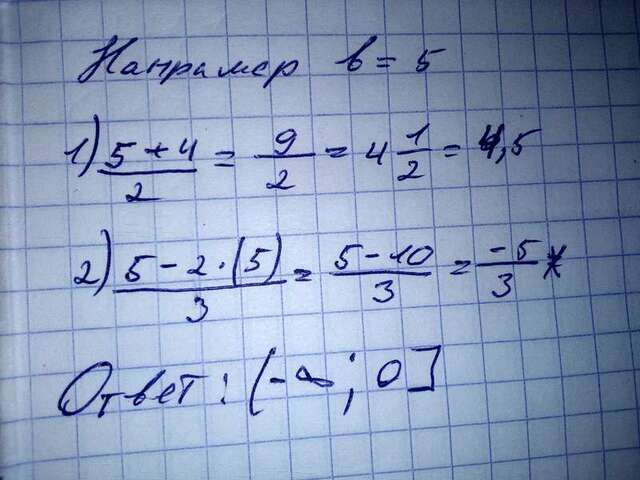 Например b = 5
1) 5 + 4 / 2 = 9 / 2 = 4 1/2 = 4,5
2) 5 - 2 · (5) / 3 = 5 - 10 / 3 = -5 / 3 *
Ответ: (-∞; 0]